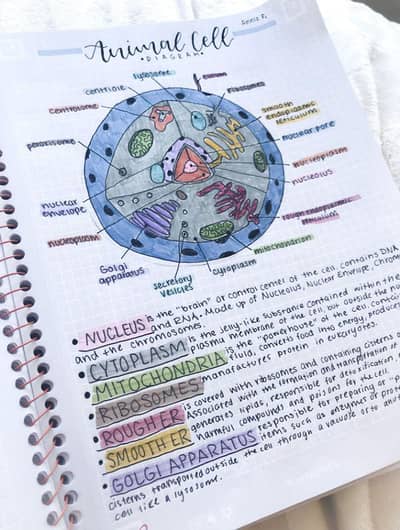 Animal Cell
• DIAGRAM •
lysosome
centriole
centrosome
ribosomes
smooth endoplasmic reticulum
peroxisome
nuclear pore
nucleoplasm
nucleolus
nuclear envelope
rough endoplasmic reticulum
nucleoplasm
mitochondrion
Golgi apparatus
secretory vesicles
cytoplasm
• NUCLEUS is the "brain" or control center of the cell. contains DNA
and RNA. Made up of Nucleolus, Nuclear Envelope,
and the chromosomes.
• CYTOPLASM is the jelly-like substance contained within the
plasma membrane of the cell but outside the
• MITOCHONDRIA is the "powerhouse" of the cell. contains
fluid, converts food into energy,
• RIBOSOMES manufactures protein in eukaryotes.
• ROUGH ER is covered with ribosomes and containing cisterns
associated with the formation and transportation of
• SMOOTH ER generates lipids, responsible for detoxification,
harmful compounds and poisons for the cell.
• GOLGI APPARATUS responsible for preparing or
items such as enzymes or
cisterns transported outside the cell through a vacuole or to
cell like a lysosome.